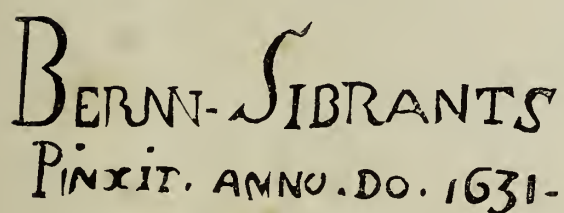 BERNN-SIBRANTS
PINXIT. ANNO.DO. 1631-